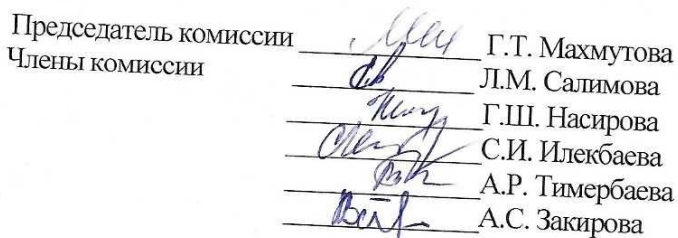 Председатель комиссии Г.Т. Махмутова
Члены комиссии Л.М. Салимова
Г.Ш. Насирова
С.И. Илекбаева
А.Р. Тимербаева
А.С. Закирова